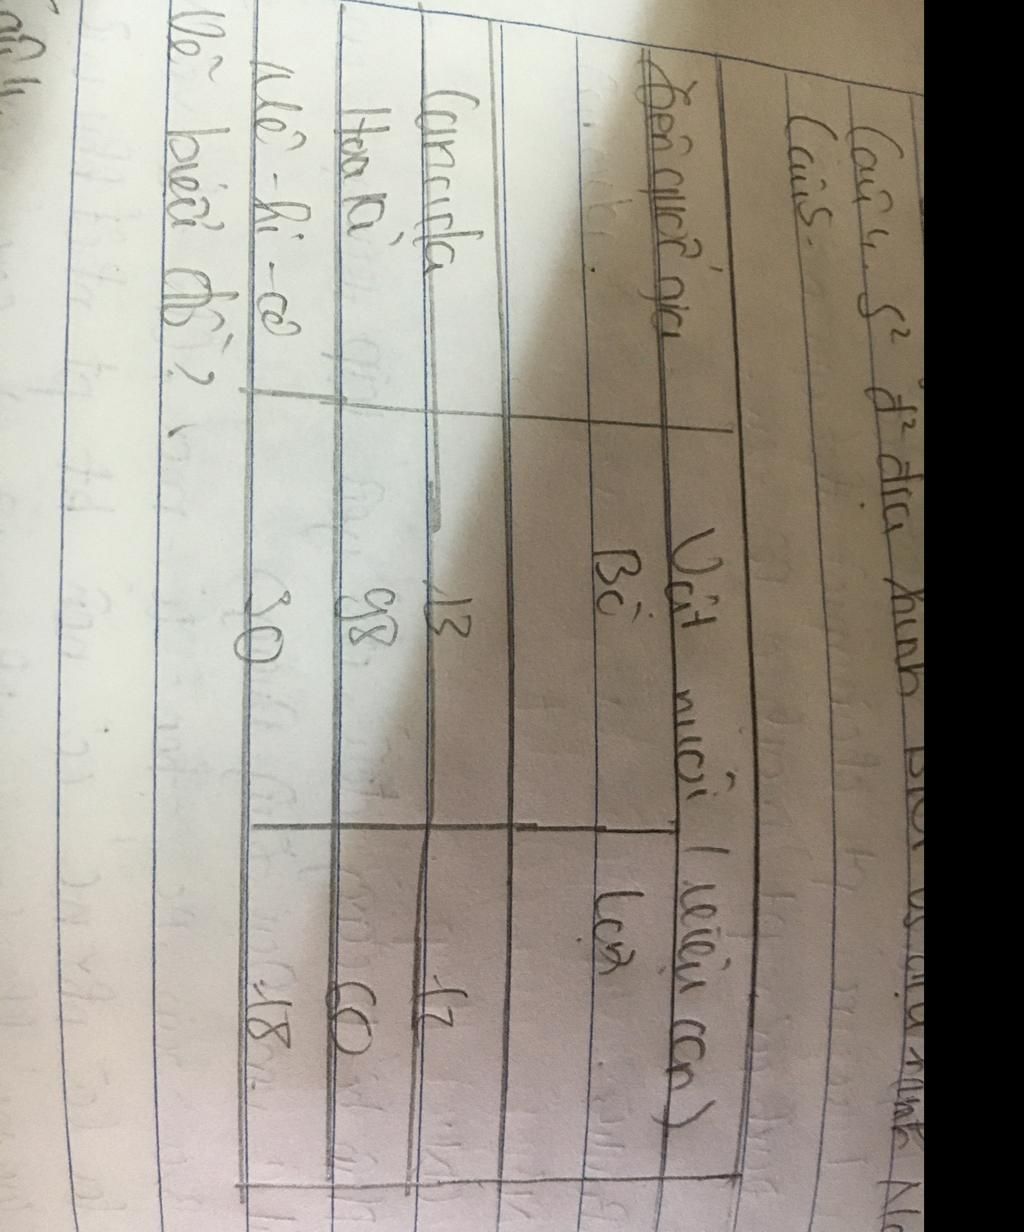 Câu 4. S² đ² địa hình Bắc
Câu 5.
Tên quốc gia | Vật nuôi (triệu con)
Bò | Lợn
Canada | 13 | 12
Hoa Kì | 98 | 60
Mê-hi-cô | 30 | 18
Vẽ biểu đồ?